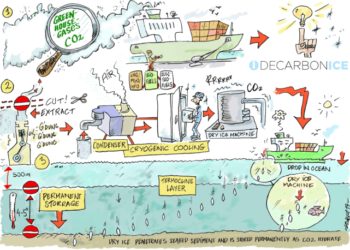 1
GREEN
HOUSE
GASES
CO2
DECARBONICE
2
CUT!
EXTRACT
CO2
CONDENSER
CRYOGENIC COOLING
DRY ICE MACHINE
3
500m
DROP IN OCEAN
DRY ICE
MACHINE
THERMOCLINE
LAYER
PERMANENT
STORRAGE
4.5°
DRY ICE PENETRATES SEABED SEDIMENT AND IS STORED PERMANENTLY AS CO2 HYDRATE